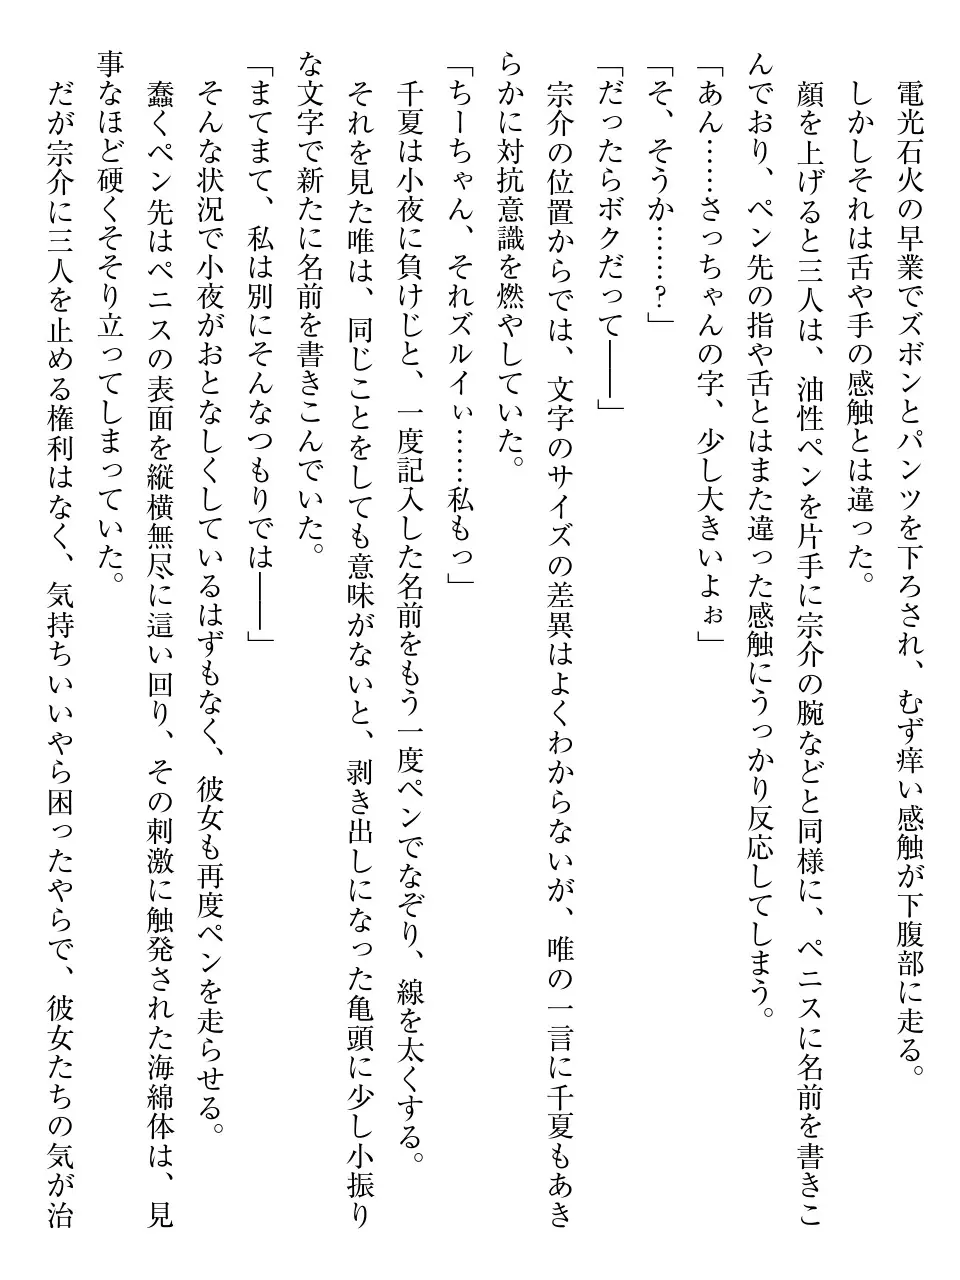 電光石火の早業でズボンとパンツを下ろされ、むず痒い感触が下腹部に走る。
　しかしそれは舌や手の感触とは違った。
　顔を上げると三人は、油性ペンを片手に宗介の腕などと同様に、ペニスに名前を書きこ
んでおり、ペン先の指や舌とはまた違った感触にうっかり反応してしまう。
「あん……さっちゃんの字、少し大きいよぉ」
「そ、そうか……？」
「だったらボクだって――」
　宗介の位置からでは、文字のサイズの差異はよくわからないが、唯の一言に千夏もあき
らかに対抗意識を燃やしていた。
「ちーちゃん、それズルイぃ……私もっ」
　千夏は小夜に負けじと、一度記入した名前をもう一度ペンでなぞり、線を太くする。
　それを見た唯は、同じことをしても意味がないと、剥き出しになった亀頭に少し小振り
な文字で新たに名前を書きこんでいた。
「まてまて、私は別にそんなつもりでは――」
　そんな状況で小夜がおとなしくしているはずもなく、彼女も再度ペンを走らせる。
　蠢くペン先はペニスの表面を縦横無尽に這い回り、その刺激に触発された海綿体は、見
事なほど硬くそそり立ってしまっていた。
　だが宗介に三人を止める権利はなく、気持ちいいやら困ったやらで、彼女たちの気が治